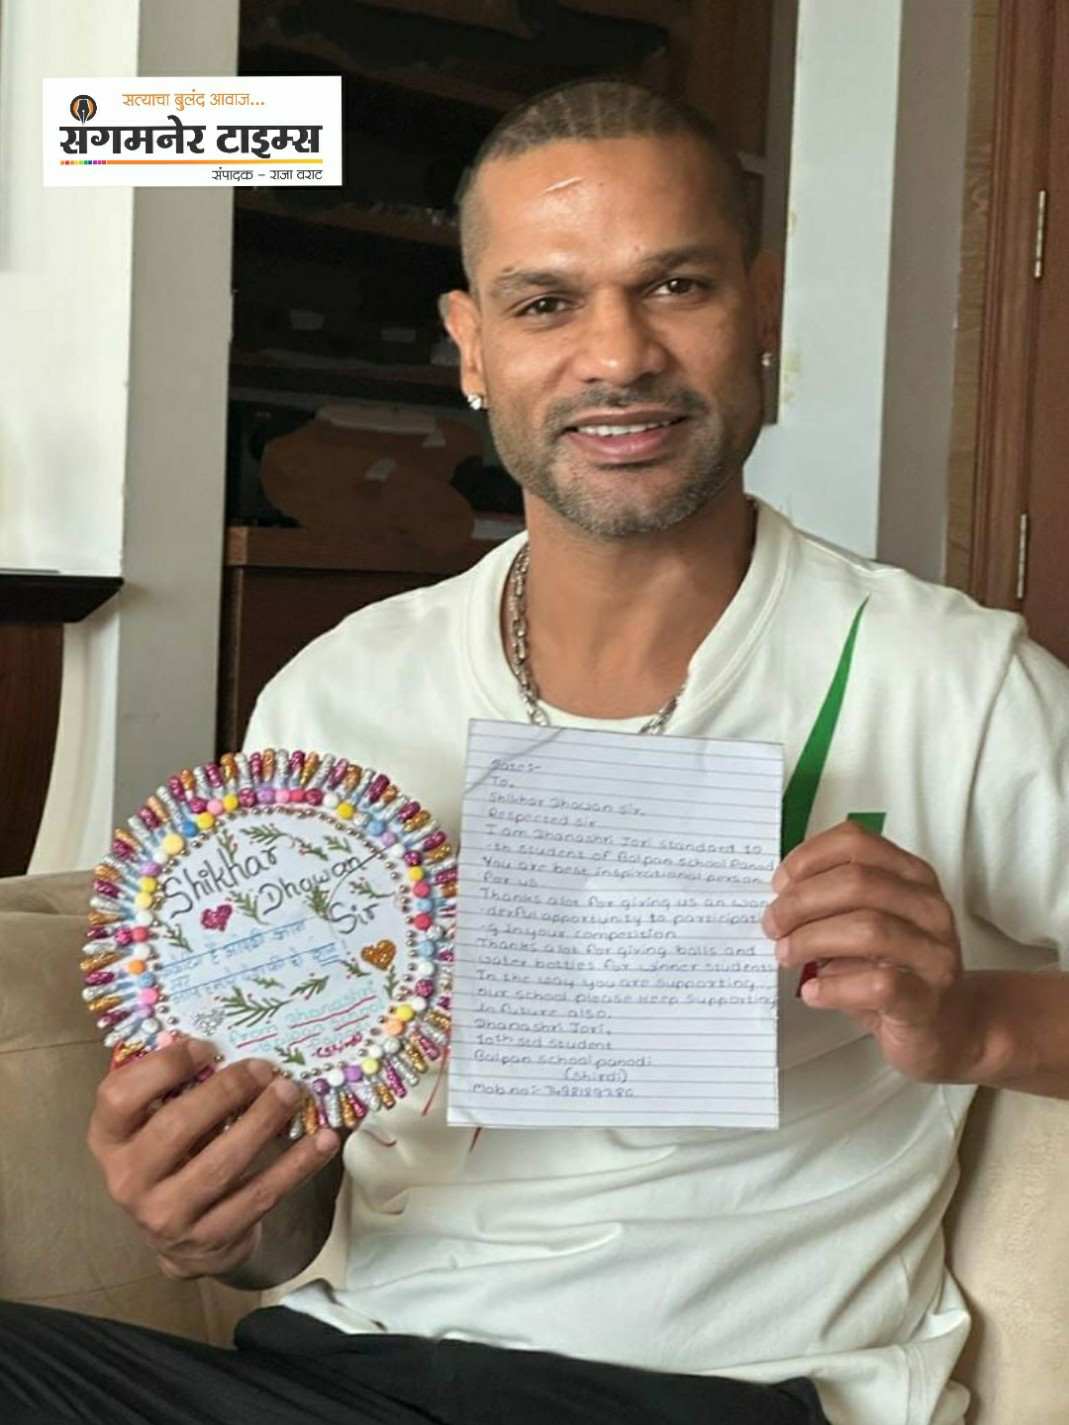 सत्याचा बुलंद आवाज...
संगमनेर टाइम्स
संपादक - राजा वराट
Shikhar
Dhawan
Sir
from Dhanashri
(Shirdi)
Date:-
To,
Shikhar Dhawan Sir.
Respected Sir
I am Dhanashri Jori standard 10
-th student of Golpan school Panod
You are best inspirational person
For us.
Thanks alot for giving us an won
-derful apportunity to participati
-g in your competition
Thanks alot for giving balls and
water bottles for winner students
In the way you are supporting
our school please keep supporting
In future also.
Dhanashri Jori.
10th std student
Golpan school panodi
(Shirdi)
Mob.no:-